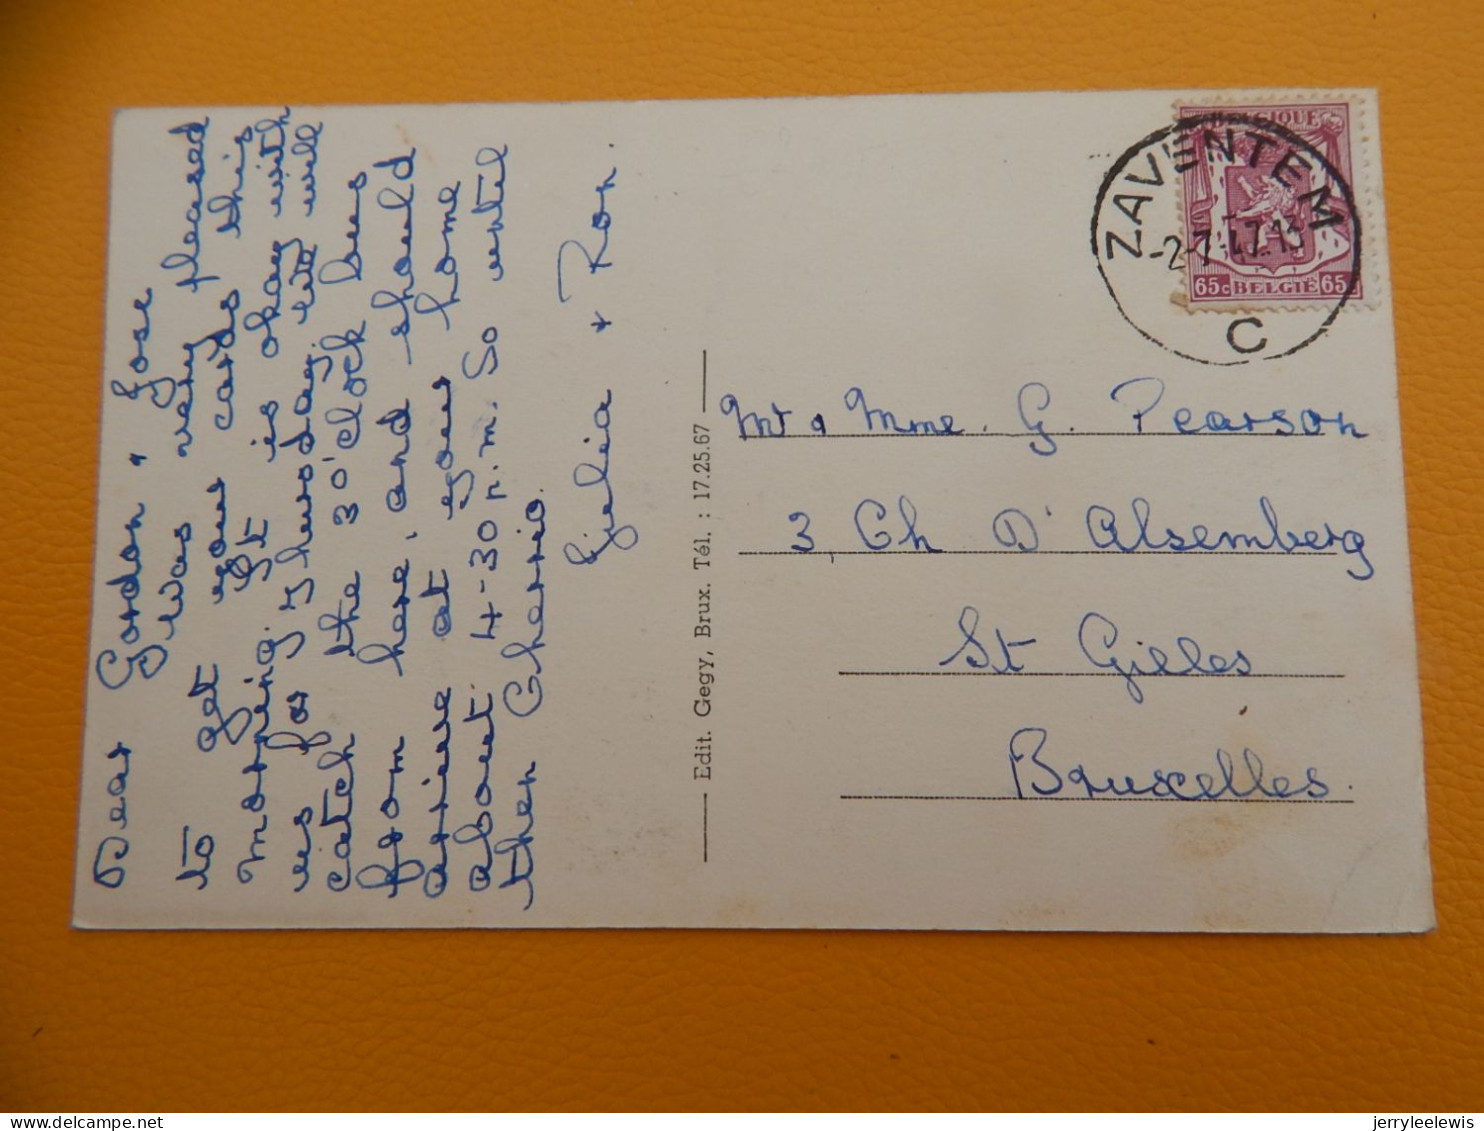 Dear Gordon & Jose
Was very pleased
to get your cards this
morning. It is okay with
us for Thursday, we will
catch the 3 O'Clock bus
from here, and should
arrive at your home
about 4-30 p.m. So until
then Cherrio.
Julia + Ron.
Edit. Gegy, Brux. Tél. : 17.25.67
BELGIQUE
65c BELGIË 65c
ZAVENTEM
-2-7-47.13
C
Mr & Mme. G. Pearson
3, Ch D'Alsemberg
St Gilles
Bruxelles.
jerryleelewis